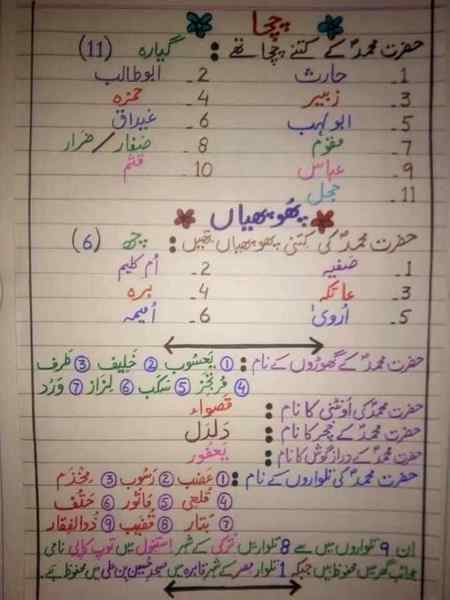 چچا
حضرت محمدؐ کے کتنے چچا تھے: گیارہ (11)
1۔ حارث 2۔ ابوطالب
3۔ زبیر 4۔ حمزہ
5۔ ابولہب 6۔ غیداق
7۔ مقوم 8۔ صفار/ضرار
9۔ عباس 10۔ قثم
11۔ حجل
پھوپھیاں
حضرت محمدؐ کی کتنی پھوپھیاں تھیں: چھ (6)
1۔ صفیہ 2۔ اُم کلیم
3۔ عاتکہ 4۔ برہ
5۔ اُرویٰ 6۔ اُمیمہ
حضرت محمدؐ کے گھوڑوں کے نام: ① یَعسُوب ② خَلِیف ③ ظَرف
④ فُرتَجِز ⑤ سَکَب ⑥ لِزَاز ⑦ وَرُد
حضرت محمدؐ کی اونٹنی کا نام: قصواء
حضرت محمدؐ کے خچر کا نام: دلدل
حضرت محمدؐ کے دراز گوش کا نام: یعفور
حضرت محمدؐ کی تلواروں کے نام: ① عضب ② رسوب ③ مِخْذَم
④ قلعی ⑤ ماثور ⑥ حتف
⑦ بتار ⑧ قضیب ⑨ ذوالفقار
اِن 9 تلواروں میں سے 8 تلواریں ترکی کے شہر استنبول میں توپ کاپی نامی
عجائب گھر میں محفوظ ہیں جبکہ 1 تلوار مصر کے شہر قاہرہ میں مسجد حسین بن علی میں محفوظ ہے۔